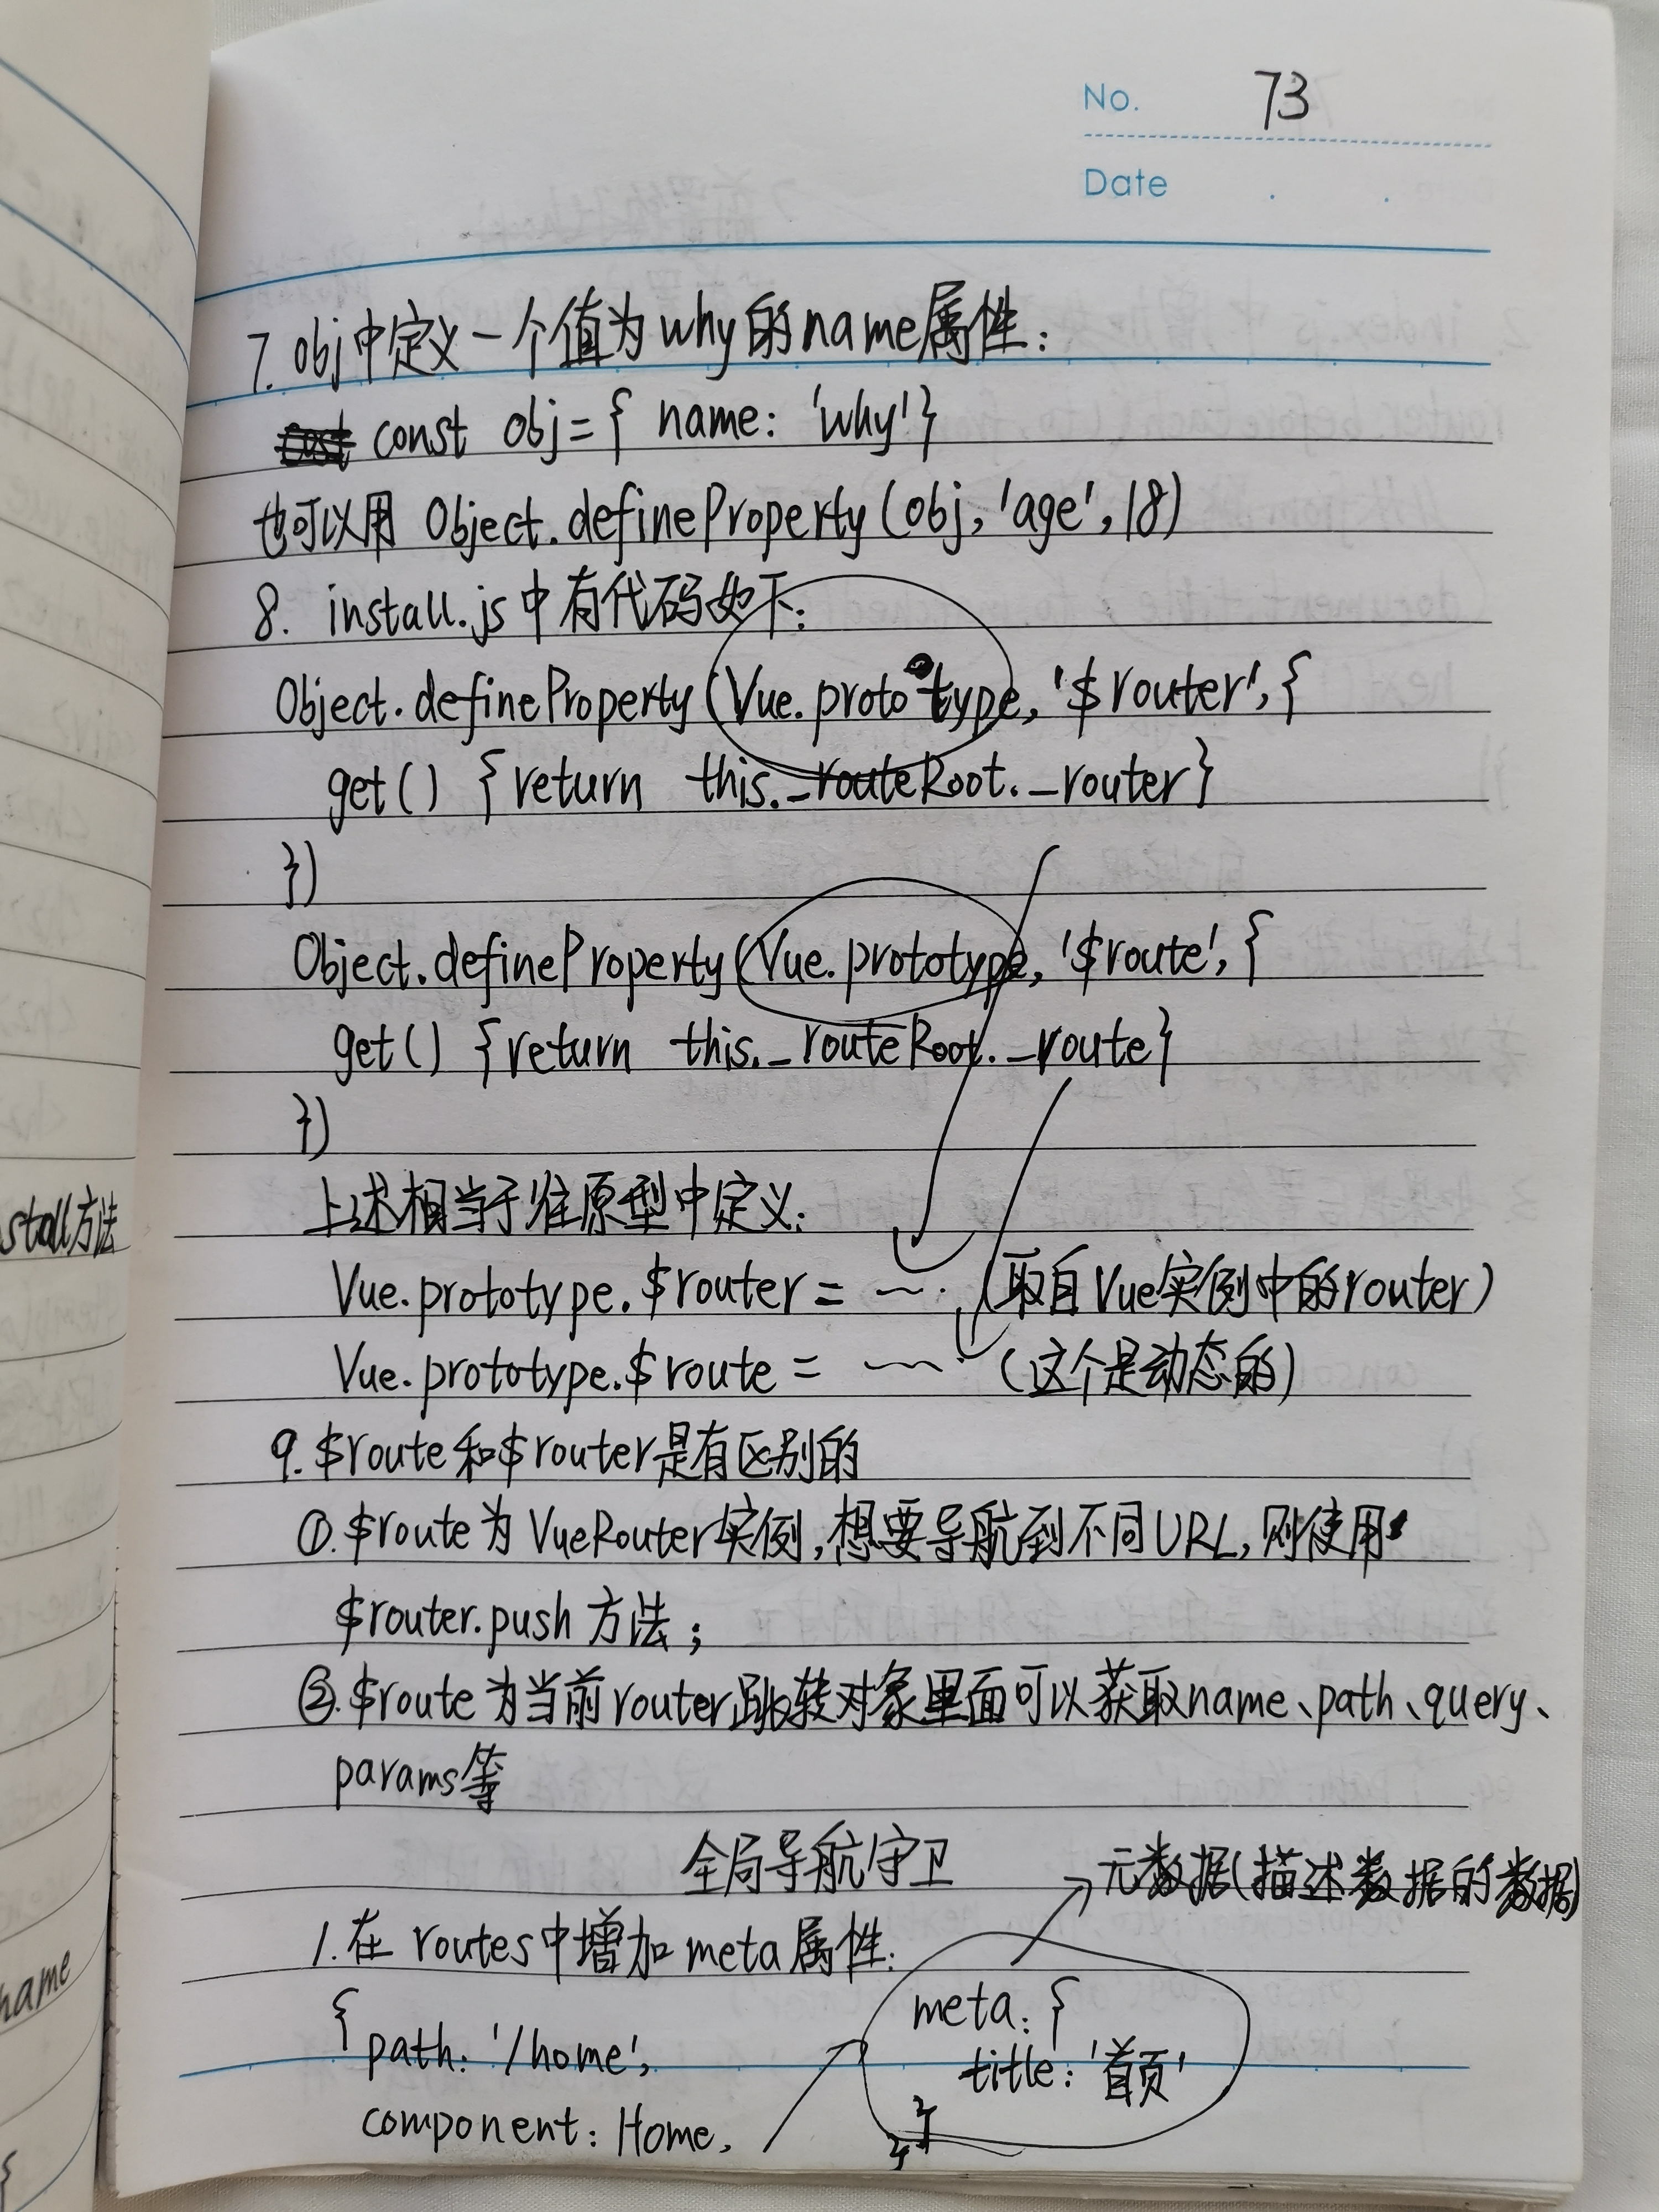 No. 73
Date . .
7. obj中定义一个值为why的name属性:
const obj={ name: 'why'}
也可以用 Object.defineProperty(obj,'age',18)
8. install.js中有代码如下:
Object.defineProperty(Vue.prototype, '$router', {
get() {return this._routeRoot._router}
})
Object.defineProperty(Vue.prototype, '$route', {
get() {return this._routeRoot._route}
})
上述相当于往原型中定义:
Vue.prototype.$router = ~~. (取自Vue实例中的router)
Vue.prototype.$route = ~~. (这个是动态的)
9. $route和$router是有区别的
①.$route为VueRouter实例,想要导航到不同URL,则使用
$router.push方法;
②.$route为当前router跳转对象里面可以获取name、path、query、
params等
全局导航守卫
元数据(描述数据的数据)
1.在routes中增加meta属性:
{
path: '/home',
component: Home,
meta: {
title: '首页'
}
}
stall方法
name
{